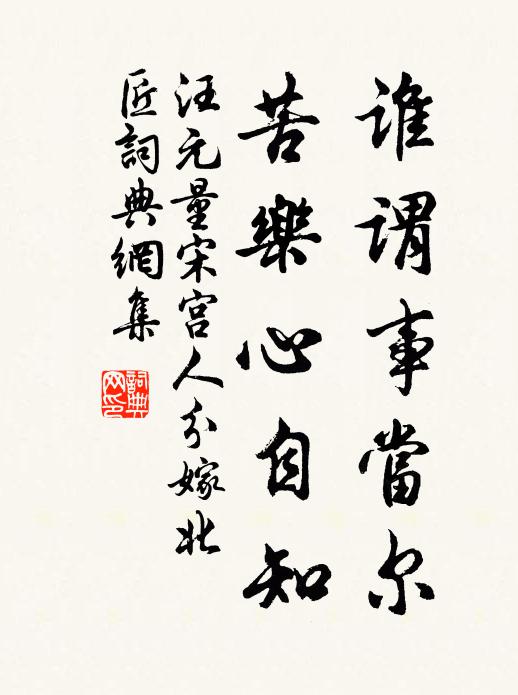 誰謂事當尔
苦樂心自知
汪元量宋宫人分嫁北
匠詞典網集
詞典
网印